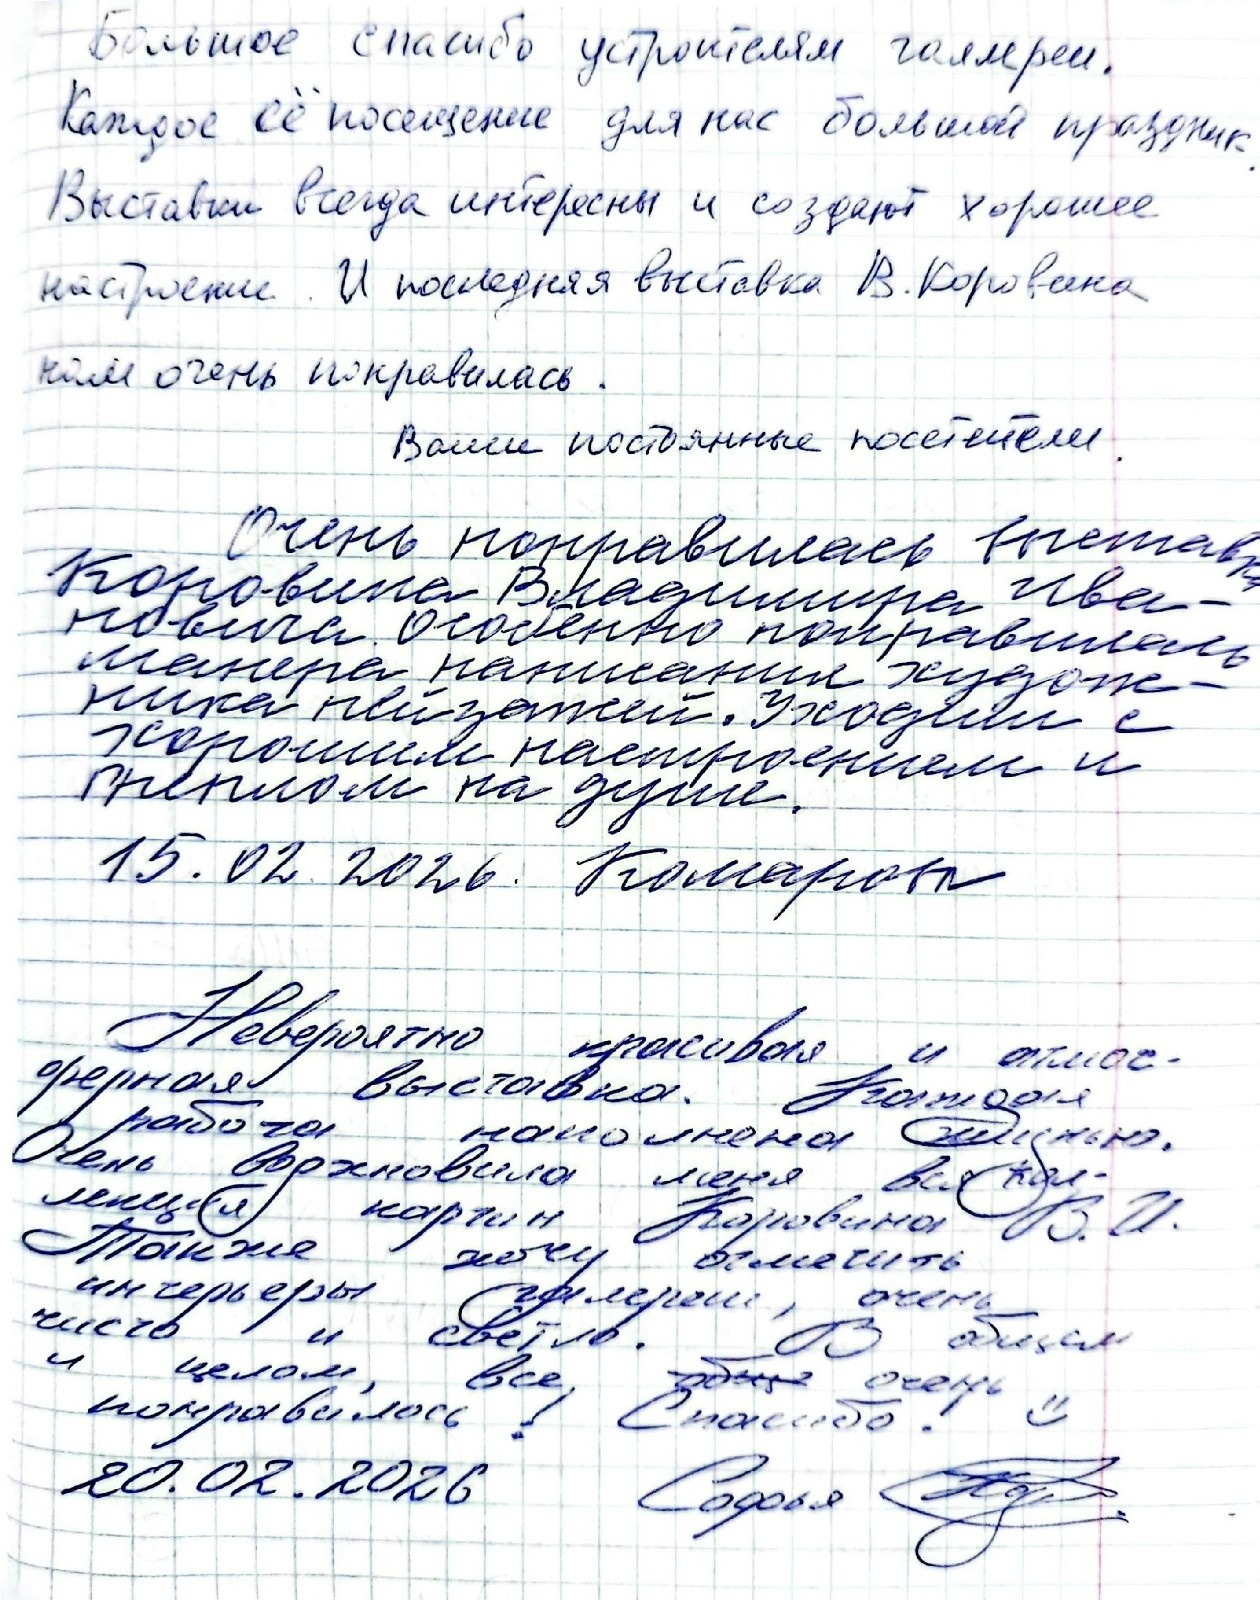 Большое спасибо устроителям галлереи.
Каждое её посещение для нас большой праздник.
Выставки всегда интересны и создают хорошее
настроение. И последняя выставка В. Коровина
нам очень понравилась.
Ваши постоянные посетители.
Очень понравилась выставка
Коровина Владимира Ива-
новича. Особенно понравилась
манера написания худож-
ника пейзажей. Уходим с
хорошим настроением и
теплом на душе.
15.02.2026. Комарова
Невероятно красивая и атмос-
ферная выставка. Каждая
работа наполнена жизнью.
Очень вдохновила меня вся кол-
лекция картин Коровина В.И.
Также хочу отметить
интерьеры галереи, очень
чисто и светло. В общем
и целом, все, обще очень
понравилось! Спасибо!
20.02.2026 Софья